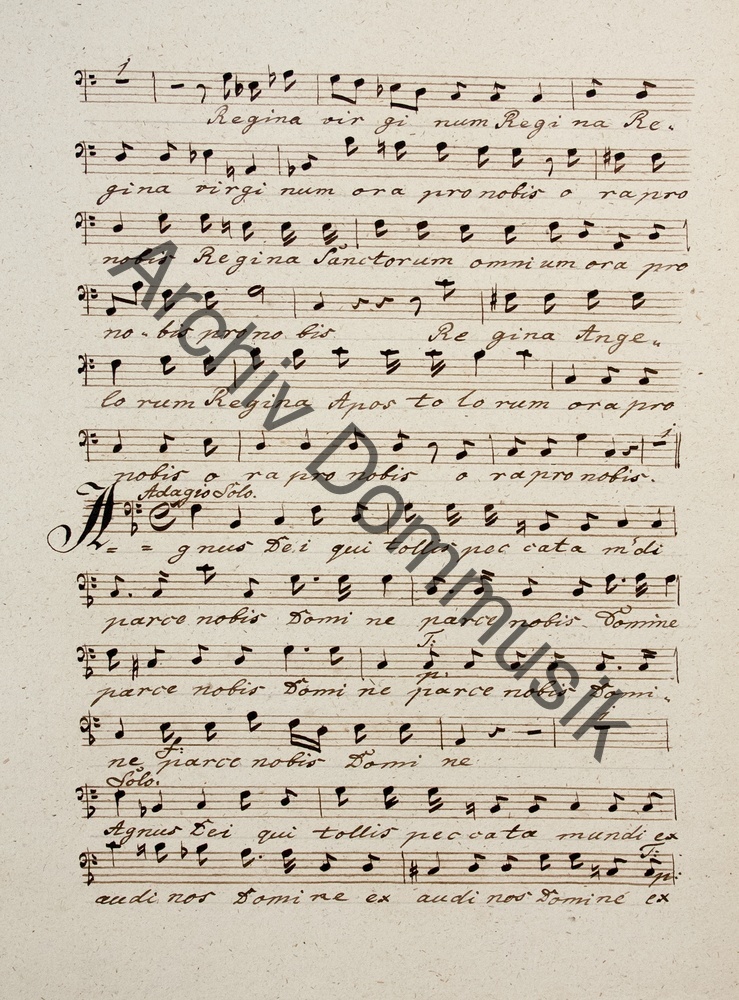 1
Regina vir gi num Regi na Re-
gina virgi num ora pro nobis o ra pro
nobis Regina Sanctorum omnium ora pro
no - bis pro no bis Re gina Ange-
lo rum Regina Apos to lo rum ora pro
1
nobis o ra pro nobis o ra pro nobis.
Adagio Solo.
A - - gnus Dei qui tollis pec cata m̃di
parce nobis Domi ne parce nobis Domine
T:
p:
parce nobis Domi ne parce nobis Domi-
1
ne parce nobis Domi ne
f:
Solo.
Agnus Dei qui tollis pec cata mundi ex
T:
p:
audi nos Domine ex audi nos Domine ex
Archiv Dommusik